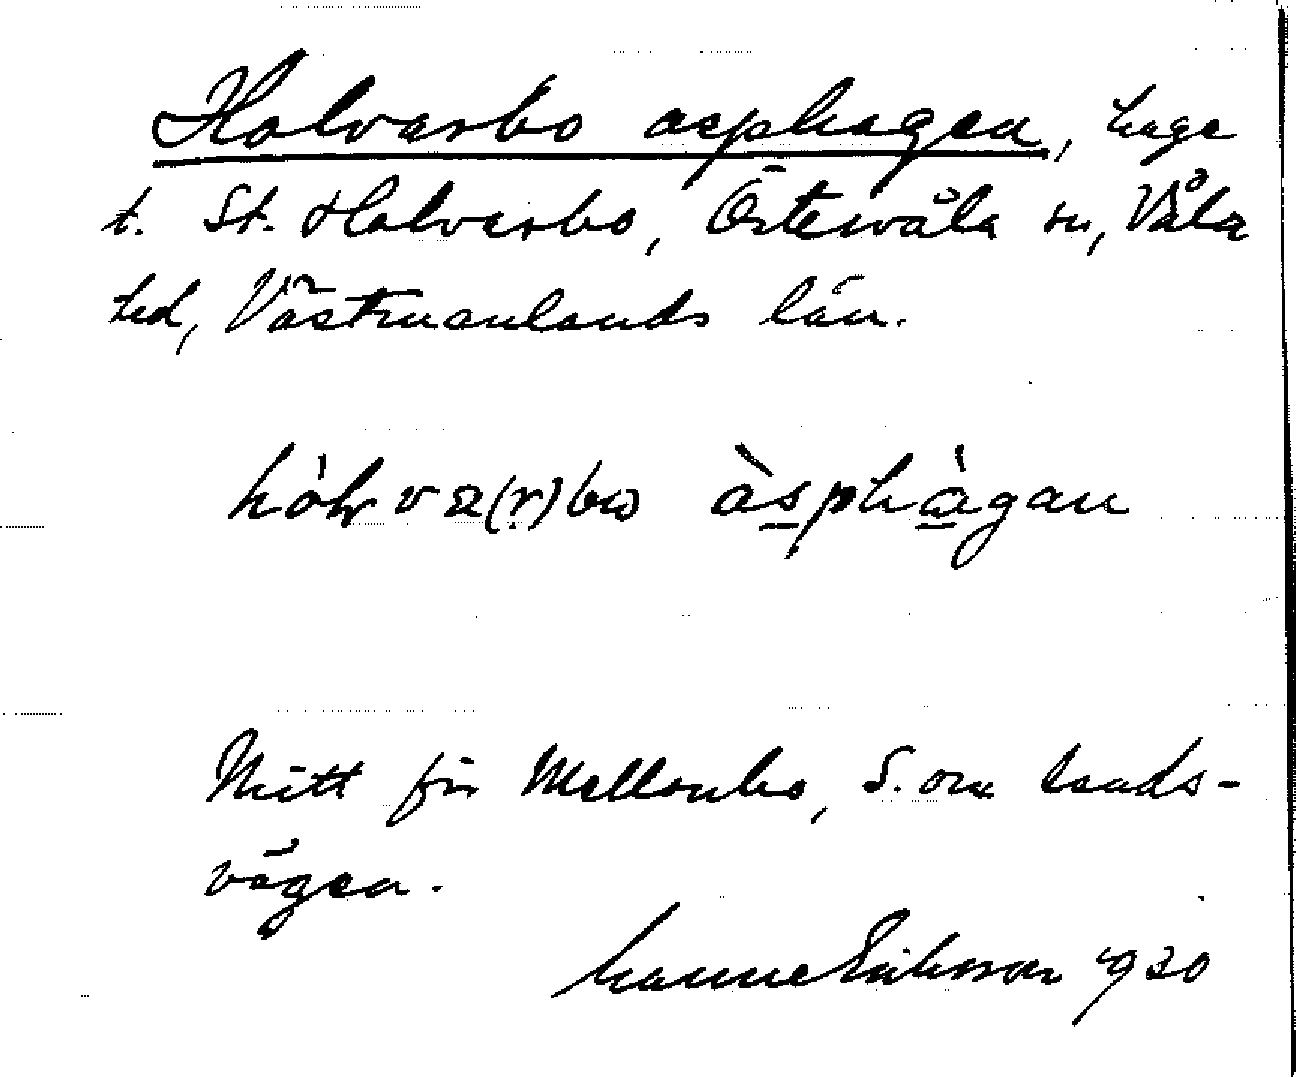 Holvarsbo asphagen, hage
t. St. Holvarsbo, Östervåla sn, Våla
hd, Västmanlands län.
àsphàgan
Mitt för Mellonbo, S. om lands-
vägen.
Manne Eriksson 1930